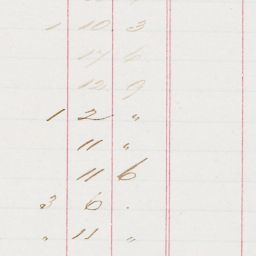 1 10 3
17 6
12 9
1 2 "
11 "
11 6
3 6 .
" 11 "